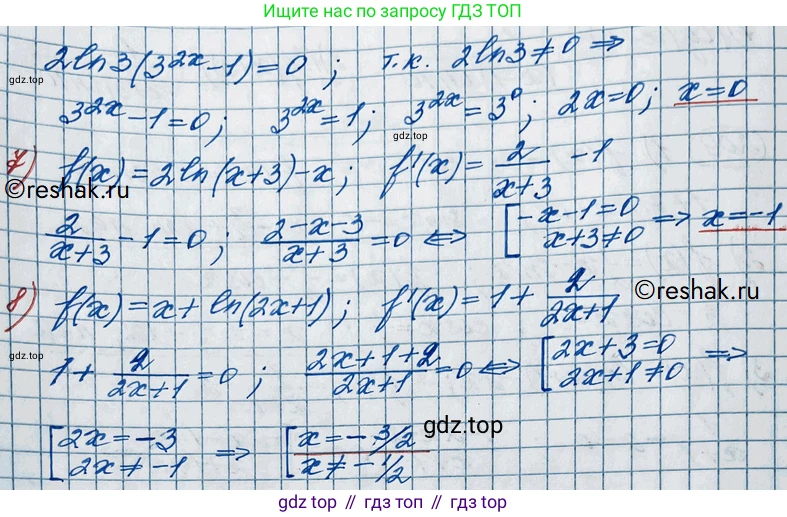 Ищите нас по запросу ГДЗ ТОП
2ln3(3^2x-1)=0; т.к. 2ln3≠0 ⇒
gdz.top
3^2x-1=0; 3^2x=1; 3^2x=3^0; 2x=0; x=0
gdz.top
7) f(x)=2ln(x+3)-x; f'(x)=2/(x+3) -1
©reshak.ru
2/(x+3) -1=0; (2-x-3)/(x+3)=0 ⇔ [-x-1=0 x+3≠0 ⇒ x=-1
8) f(x)=x+ln(2x+1); f'(x)=1+2/(2x+1)
©reshak.ru
gdz.top
1+2/(2x+1)=0; (2x+1+2)/(2x+1)=0 ⇔ [2x+3=0 2x+1≠0 ⇒
[2x=-3 2x≠-1 ⇒ [x=-3/2 x≠-1/2
gdz.top
gdz top // гдз топ // gdz.top